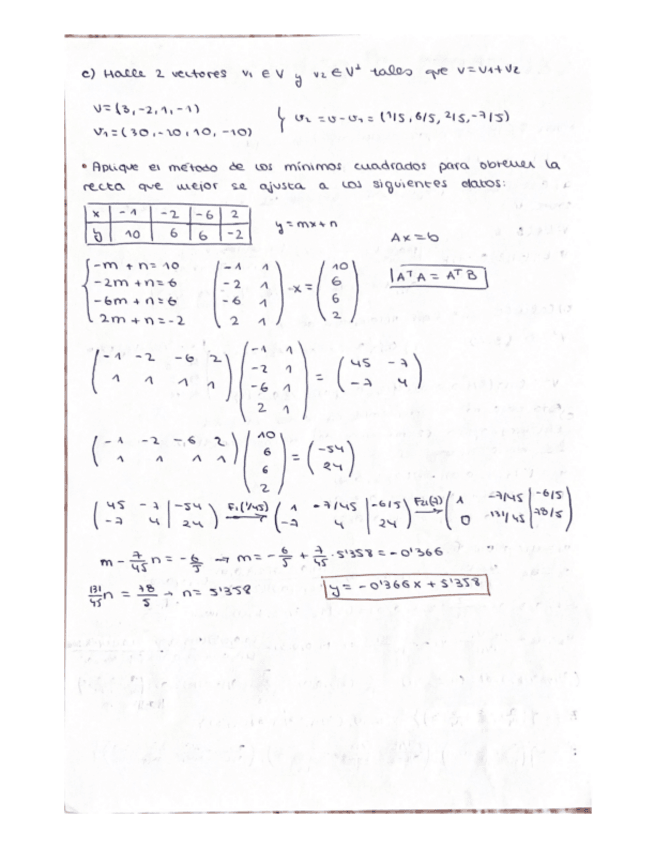 c) Halle 2 vectores v₁ ∈ V y v₂ ∈ V⊥ tales que v=v₁+v₂
v=(3,-2,1,-1)
v₁=(30,-10,10,-10) { v₂ = v-v₁ = (1/5, 6/5, 2/5, -7/5)
• Aplique el método de los mínimos cuadrados para obtener la
recta que mejor se ajusta a los siguientes datos:
x | -1 | -2 | -6 | 2
y | 10 | 6 | 6 | -2
y = mx+n
Ax=b
AᵀA = AᵀB
{ -m + n = 10
-2m + n = 6
-6m + n = 6
2m + n = -2
(-1 1; -2 1; -6 1; 2 1) · x = (10; 6; 6; 2)
(-1 -2 -6 2; 1 1 1 1) (-1 1; -2 1; -6 1; 2 1) = (45 -7; -7 4)
(-1 -2 -6 2; 1 1 1 1) (10; 6; 6; 2) = (-54; 24)
(45 -7 | -54; -7 4 | 24) F₁(1/45) → (1 -7/45 | -6/5; -7 4 | 24) F₂₁(7) → (1 -7/45 | -6/5; 0 131/45 | 78/5)
m - 7/45 n = -6/5 → m = -6/5 + 7/45 · 5'358 = -0'366
131/45 n = 78/5 → n = 5'358
y = -0'366x + 5'358